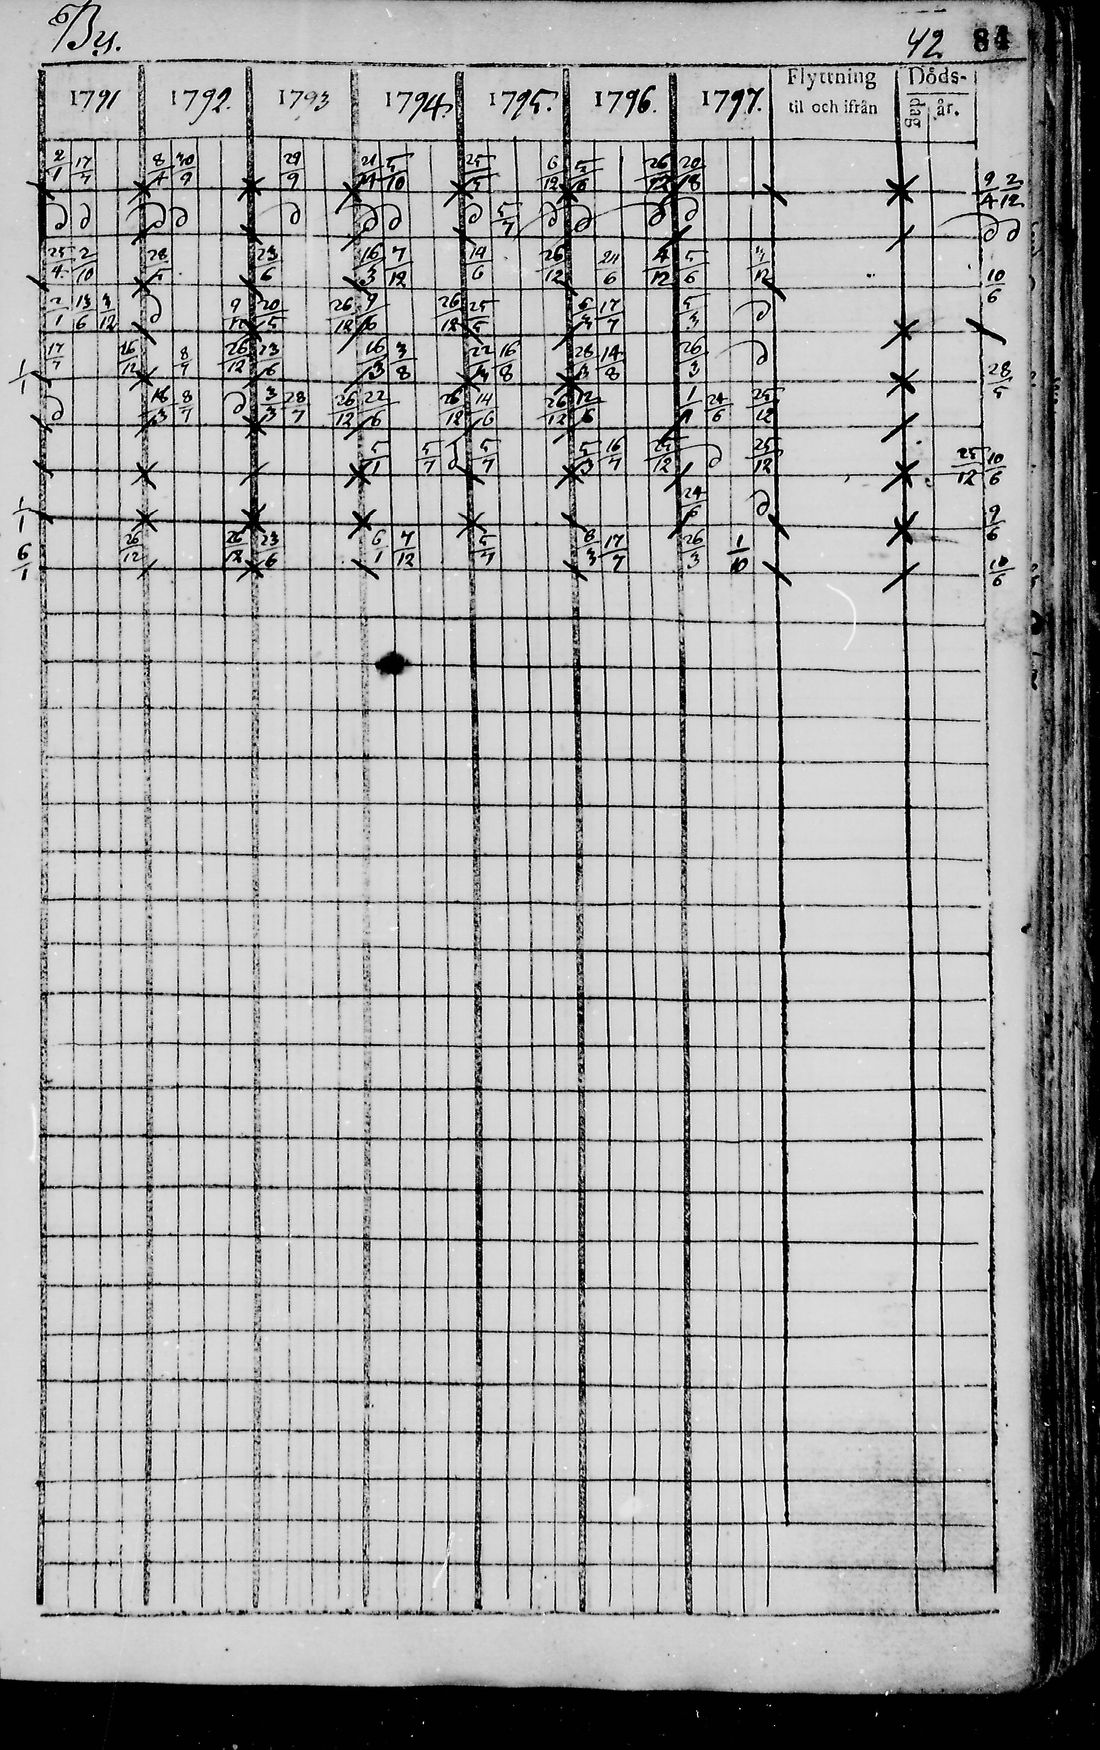 By. 42 84
1791 1792. 1793 1794. 1795. 1796. 1797. Flyttning til och ifrån Döds- dag år.
2/1 17/7 8/4 30/9 29/9 21/4 5/10 25/5 6/12 5/6 26/12 20/18 9/4 2/12
d d d d d d d d 5/7 d d d d d d
25/4 2/10 28/5 23/6 16/3 7/12 14/6 26/12 24/6 4/12 5/6 4/12 10/6
2/1 13/6 4/12 d 9/12 20/5 26/12 9/6 26/12 25/5 6/3 17/7 5/3 d
1/1 17/7 26/12 8/7 26/12 23/6 16/3 3/8 22/4 16/8 28/3 14/8 26/3 d 28/5
d 18/3 8/7 d 3/3 28/7 26/12 22/6 26/12 14/6 26/12 12/6 1/1 24/6 25/12
5/1 5/7 d 5/7 5/3 16/7 25/12 d 25/12 25/12 10/6
1/1 24/6 d 9/6
6/1 26/12 26/12 23/6 6/1 7/12 5/7 6/3 17/7 26/3 1/10 10/6